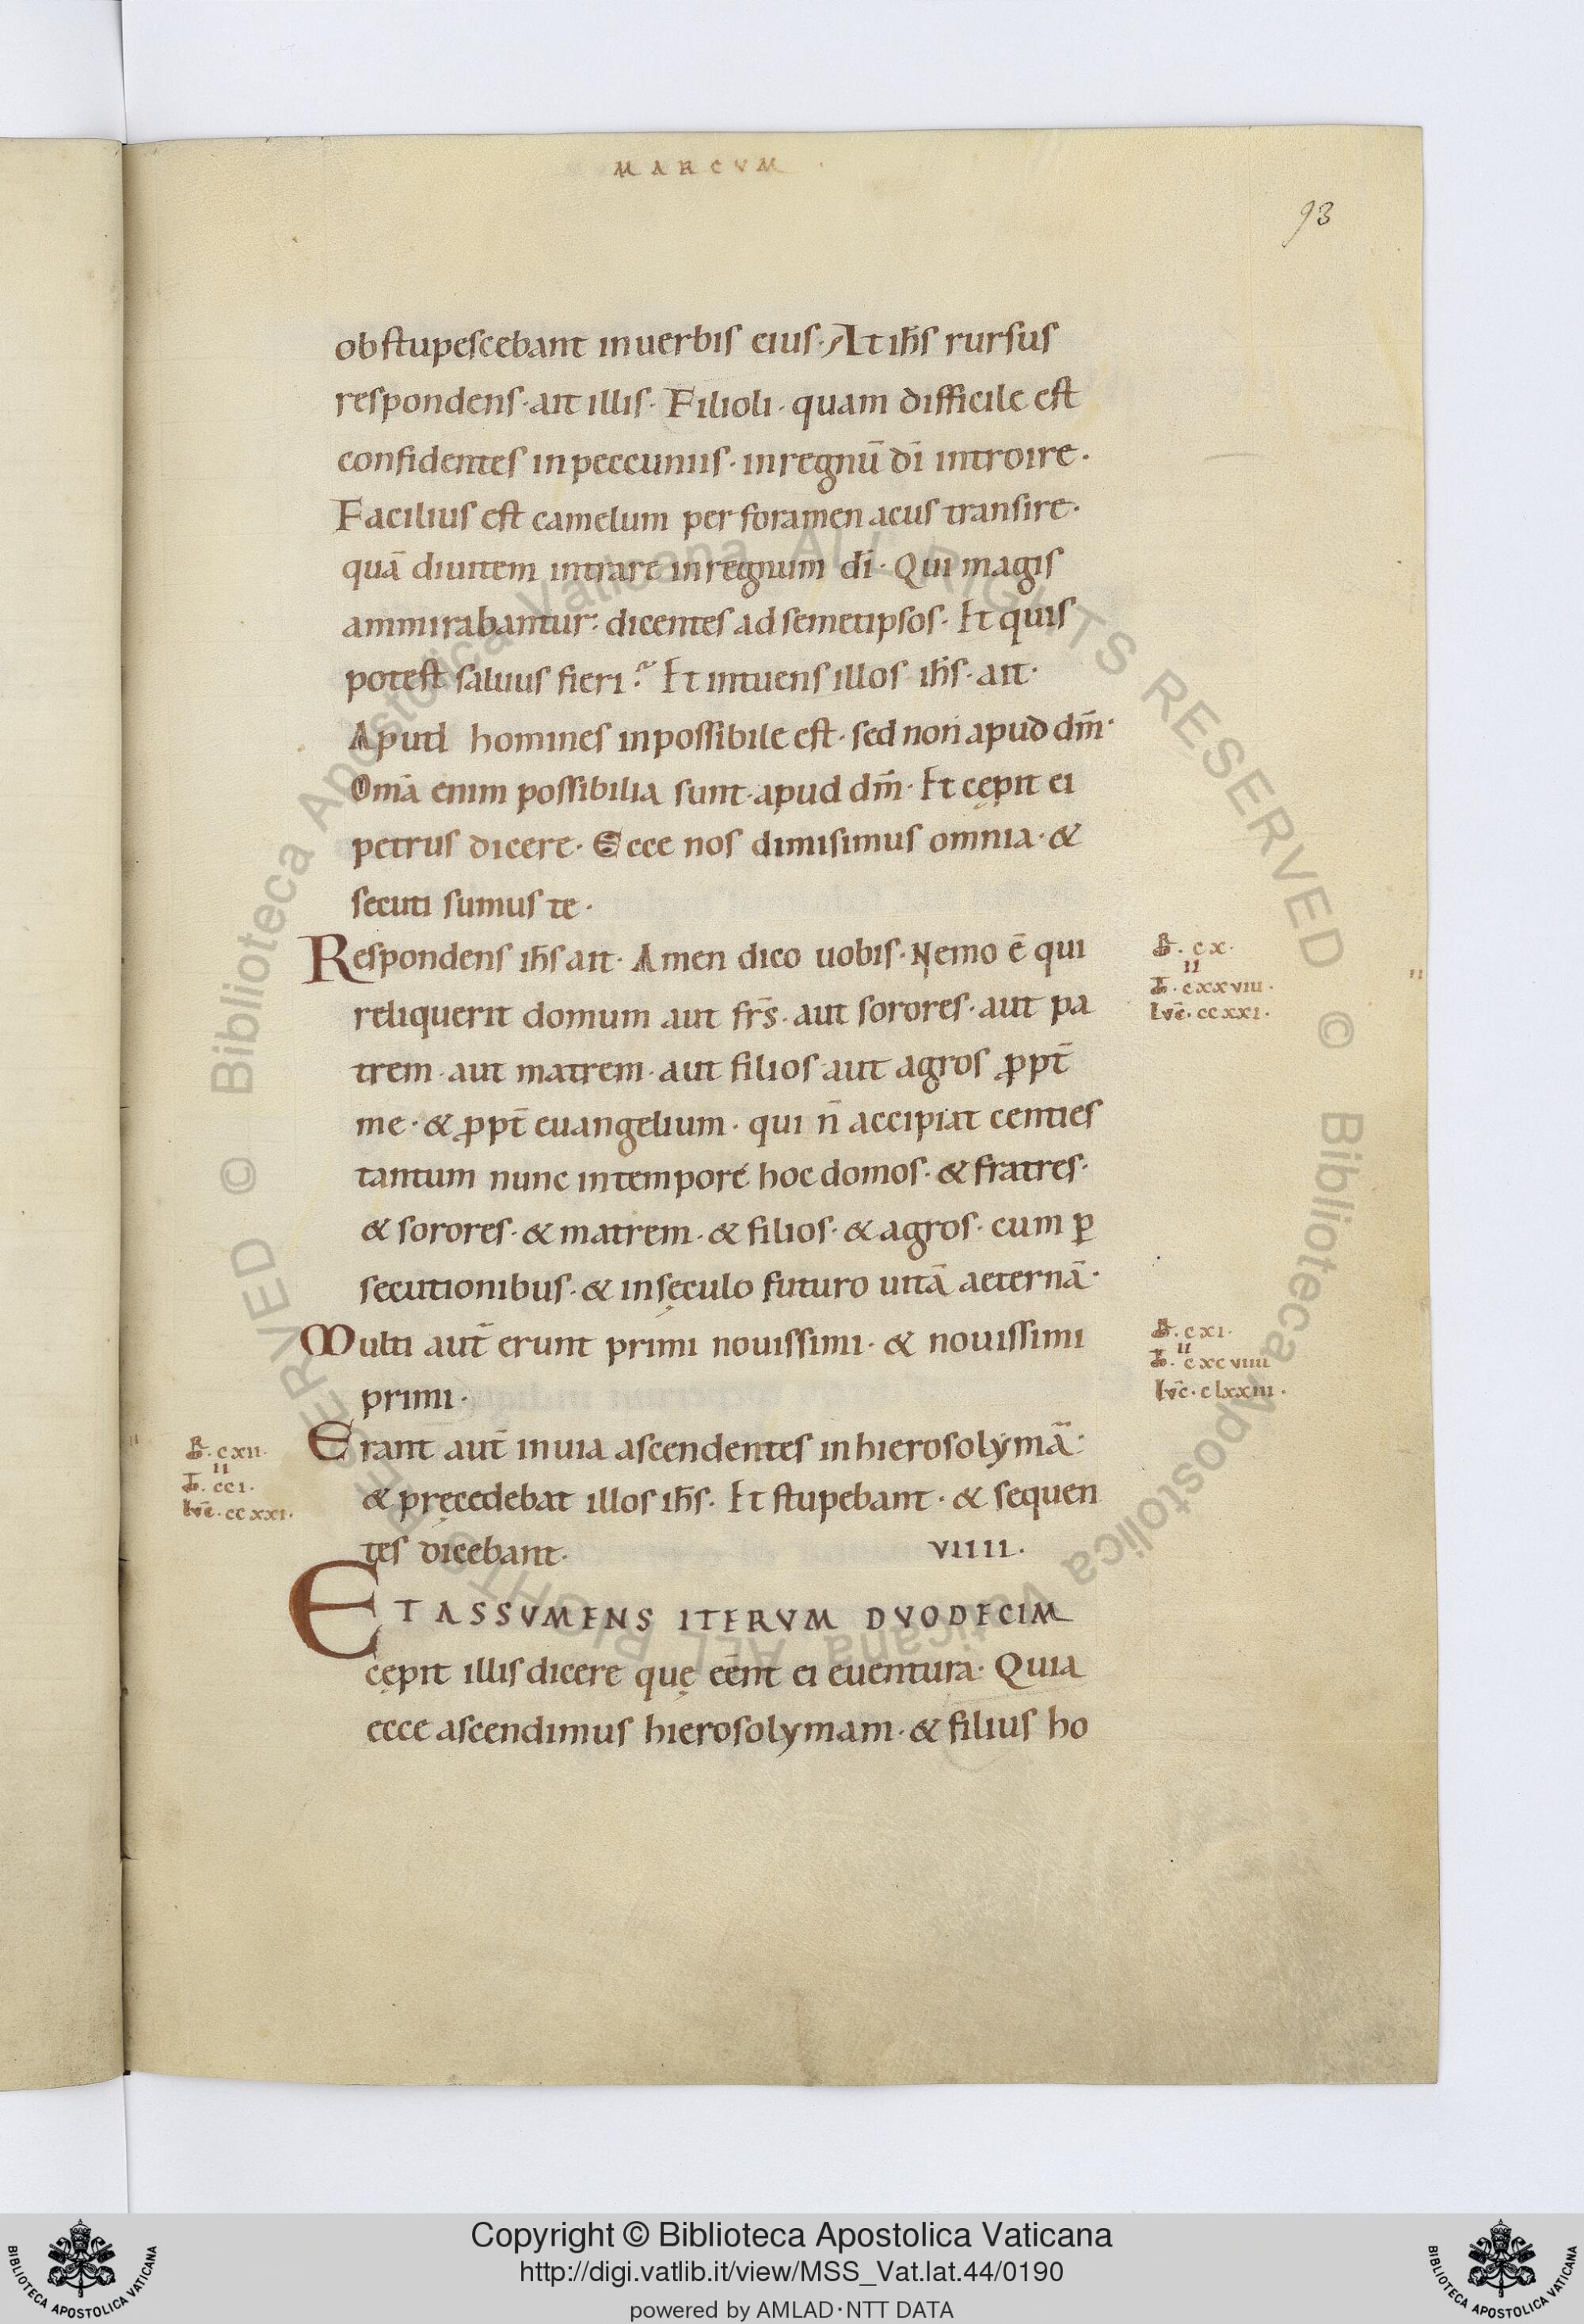 MARCVM
93
obstupescebant inuerbis eius· At ih̅s rursus
respondens· ait illis· Filioli· quam difficile est
confidentes inpeccuniis· inregnū dı̅ introire·
Facilius est camelum per foramen acus transire·
quā diuitem intrare inregnum dı̅· Qui magis
ammirabantur: dicentes ad semetipsos· Et quis
potest saluus fieri? Et intuens illos ih̅s· ait·
Apud homines inpossibile est· sed non apud dm̅·
Om̅a enim possibilia sunt· apud dm̅· Et cępit ei
petrus dicere· Ecce nos dimisimus omnia· &
secuti sumus te·
Respondens ih̅s ait· Amen dico uobis· Nemo ē qui
reliquerit domum aut fr̅s· aut sorores· aut pa
trem· aut matrem· aut filios aut agros ꝓpt̅
me· & ꝓpt̅ euangelium· qui n̅ accipiat centies
tantum nunc intempore hoc domos· & fratres·
& sorores· & matrem· & filios· & agros· cum ꝑ
secutionibus· & insęculo futuro uitā aeternā·
Multi aut̅ erunt primi nouissimi· & nouissimi
primi·
Erant aut̅ inuia ascendentes inhierosolymā:
& pręcedebat illos ih̅s· Et stupebant· & sequen
tes dicebant· VIIII·
ET ASSVMENS ITERVM DVODECIM
cępit illis dicere quę ee̅nt ei euentura· Quia
ecce ascendimus hierosolymam· & filius ho
cx·
II
cxxviii·
lvc̅· ccxxi·
cxi·
II
cxcviiii
lvc̅· clxxiii·
cxii·
II
cci·
lvc̅· ccxxi·
© Biblioteca Apostolica Vaticana ALL RIGHTS RESERVED
© Biblioteca Apostolica Vaticana ALL RIGHTS RESERVED
BIBLIOTECA APOSTOLICA VATICANA
Copyright © Biblioteca Apostolica Vaticana
http://digi.vatlib.it/view/MSS_Vat.lat.44/0190
powered by AMLAD·NTT DATA
BIBLIOTECA APOSTOLICA VATICANA